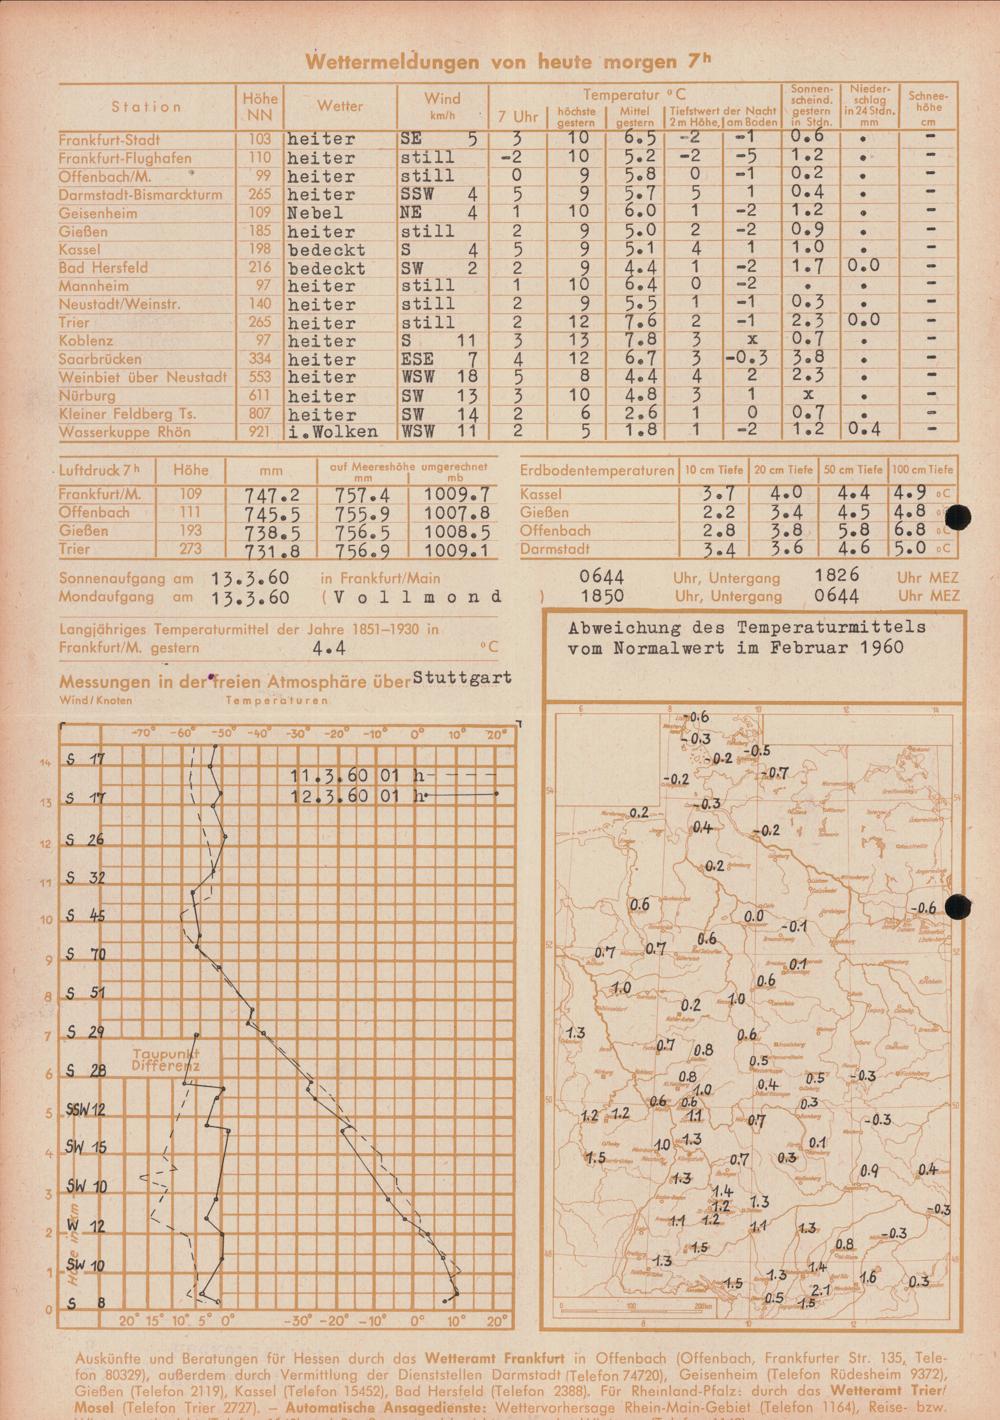 Wettermeldungen von heute morgen 7h
Station Höhe NN Wetter Wind km/h Temperatur °C Sonnen-scheind. gestern in Stdn. Nieder-schlag in 24 Stdn. mm Schnee-höhe cm
7 Uhr höchste gestern Mittel gestern Tiefstwert der Nacht 2 m Höhe, am Boden
Frankfurt-Stadt 103 heiter SE 5 3 10 6.5 -2 -1 0.6 . -
Frankfurt-Flughafen 110 heiter still -2 10 5.2 -2 -5 1.2 . -
Offenbach/M. 99 heiter still 0 9 5.8 0 -1 0.2 . -
Darmstadt-Bismarckturm 265 heiter SSW 4 5 9 5.7 5 1 0.4 . -
Geisenheim 109 Nebel NE 4 1 10 6.0 1 -2 1.2 . -
Gießen 185 heiter still 2 9 5.0 2 -2 0.9 . -
Kassel 198 bedeckt S 4 5 9 5.1 4 1 1.0 . -
Bad Hersfeld 216 bedeckt SW 2 2 9 4.4 1 -2 1.7 0.0 -
Mannheim 97 heiter still 1 10 6.4 0 -2 . . -
Neustadt/Weinstr. 140 heiter still 2 9 5.5 1 -1 0.3 . -
Trier 265 heiter still 2 12 7.6 2 -1 2.3 0.0 -
Koblenz 97 heiter S 11 3 13 7.8 3 x 0.7 . -
Saarbrücken 334 heiter ESE 7 4 12 6.7 3 -0.3 3.8 . -
Weinbiet über Neustadt 553 heiter WSW 18 5 8 4.4 4 2 2.3 . -
Nürburg 611 heiter SW 13 3 10 4.8 3 1 x . -
Kleiner Feldberg Ts. 807 heiter SW 14 2 6 2.6 1 0 0.7 . -
Wasserkuppe Rhön 921 i.Wolken WSW 11 2 5 1.8 1 -2 1.2 0.4 -
Luftdruck 7h Höhe mm auf Meereshöhe umgerechnet mm mb
Frankfurt/M. 109 747.2 757.4 1009.7
Offenbach 111 745.5 755.9 1007.8
Gießen 193 738.5 756.5 1008.5
Trier 273 731.8 756.9 1009.1
Erdbodentemperaturen 10 cm Tiefe 20 cm Tiefe 50 cm Tiefe 100 cm Tiefe
Kassel 3.7 4.0 4.4 4.9 °C
Gießen 2.2 3.4 4.5 4.8 °C
Offenbach 2.8 3.8 5.8 6.8 °C
Darmstadt 3.4 3.6 4.6 5.0 °C
Sonnenaufgang am 13.3.60 in Frankfurt/Main 0644 Uhr, Untergang 1826 Uhr MEZ
Mondaufgang am 13.3.60 (Vollmond) 1850 Uhr, Untergang 0644 Uhr MEZ
Langjähriges Temperaturmittel der Jahre 1851–1930 in
Frankfurt/M. gestern 4.4 °C
Messungen in der freien Atmosphäre über Stuttgart
Wind/Knoten Temperaturen
-70° -60° -50° -40° -30° -20° -10° 0° 10° 20°
11.3.60 01 h
12.3.60 01 h
14 S 17
13 S 17
12 S 26
11 S 32
10 S 45
9 S 70
8 S 51
7 S 29
Taupunkt
Differenz
6 S 28
5 SSW 12
4 SW 15
3 SW 10
2 W 12
1 SW 10
0 S 8
Höhe in km
20° 15° 10° 5° 0° -30° -20° -10° 0° 10° 20°
Abweichung des Temperaturmittels
vom Normalwert im Februar 1960
6 8 10 12 14
-0.6
-0.3
-0.2 -0.5
-0.2 -0.7
-0.3
0.2
0.4 -0.2
0.2
0.6 0.0 -0.6
-0.1
0.7 0.7 0.6
0.1
1.0 0.6
0.2 1.0
1.3 0.6
0.7 0.8
0.5
0.8 0.4 0.5 -0.3
1.0
0.6 0.6 0.3
1.2 1.2 1.1 0.7 -0.3
1.0 1.3 0.1
1.5 0.7 0.3
1.3 0.9 0.4
1.4
1.2 1.3 -0.3
1.1 1.2 1.1 1.3 -0.3
1.5 0.8
1.3 1.4
1.5 1.3 1.6 0.3
0.5 2.1
1.5
0 100 200km
Auskünfte und Beratungen für Hessen durch das Wetteramt Frankfurt in Offenbach (Offenbach, Frankfurter Str. 135, Tele-
fon 80329), außerdem durch Vermittlung der Dienststellen Darmstadt (Telefon 74720), Geisenheim (Telefon Rüdesheim 9372),
Gießen (Telefon 2119), Kassel (Telefon 15452), Bad Hersfeld (Telefon 2388). Für Rheinland-Pfalz: durch das Wetteramt Trier/
Mosel (Telefon Trier 2727). — Automatische Ansagedienste: Wettervorhersage Rhein-Main-Gebiet (Telefon 1164), Reise- bzw.